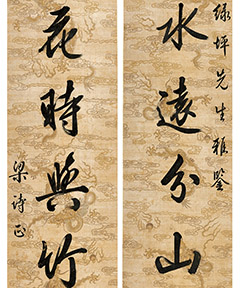 绿坪先生雅鑒
水遠分山
花時與竹
梁诗正